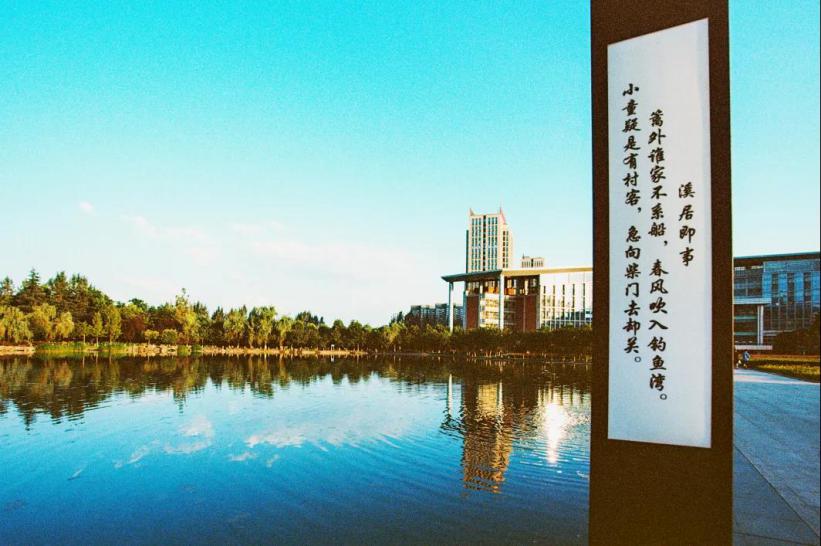 溪居即事
篱外谁家不系船，春风吹入钓鱼湾。
小童疑是有村客，急向柴门去却关。